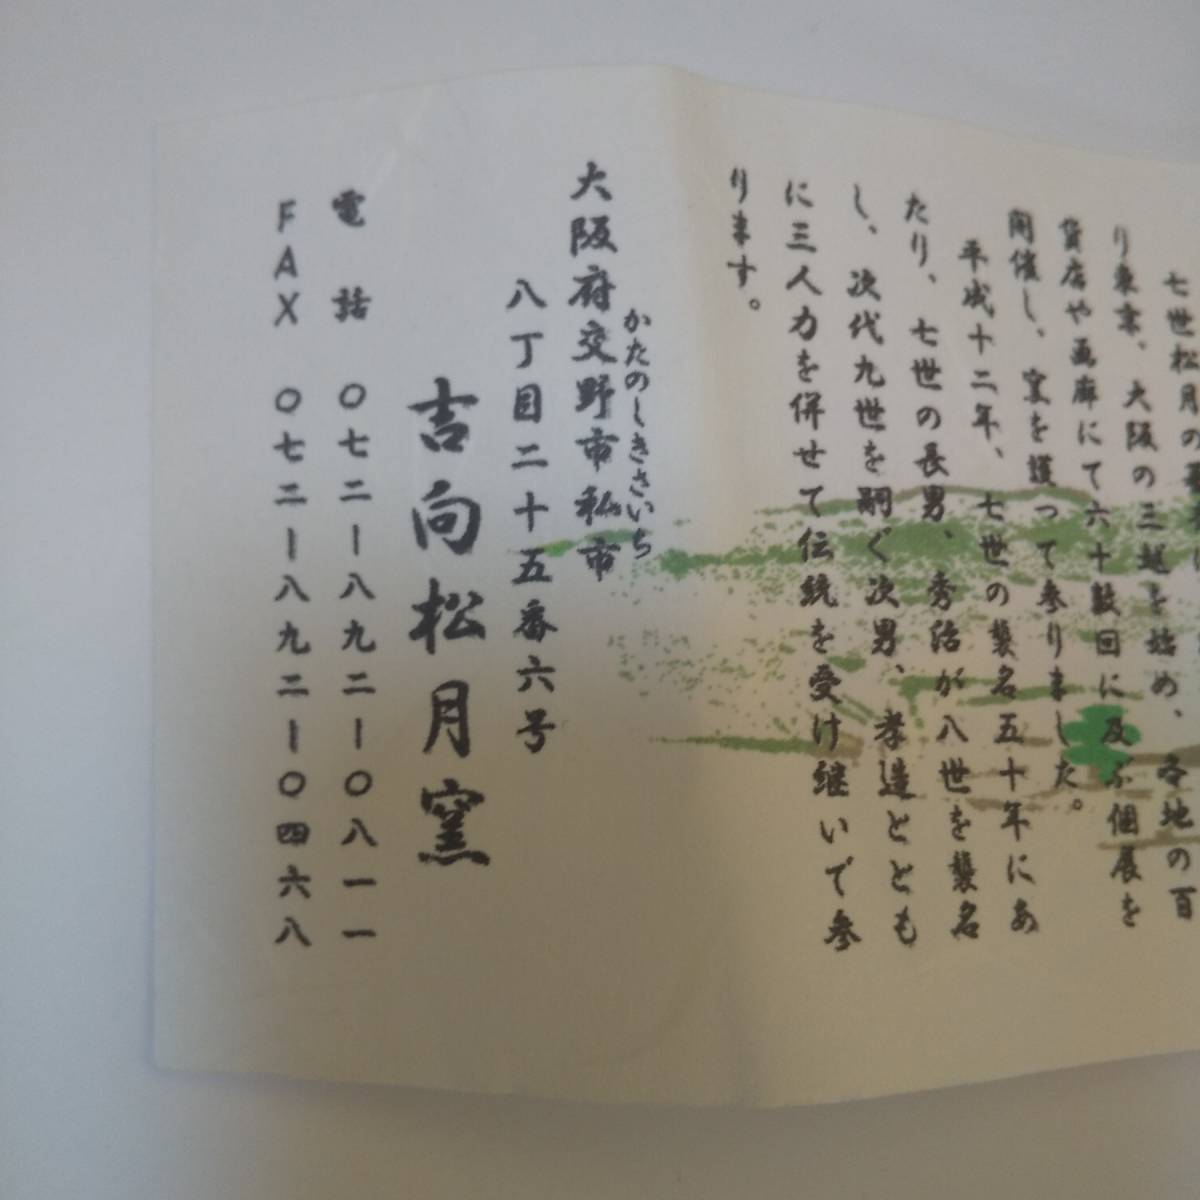 七世松月の
り東京、大阪の三越を始め、各地の百
貨店や画廊にて六十数回に及ぶ個展を
開催し、窯を護って参りました。
平成十二年、七世の襲名五十年にあ
たり、七世の長男、秀治が八世を襲名
し、次代九世を嗣ぐ次男、孝造ととも
に三人力を併せて伝統を受け継いで参
ります。
かたのしきさいち
大阪府交野市私市
八丁目二十五番六号
吉向松月窯
電話 〇七二ー八九二ー〇八一一
FAX 〇七二ー八九二ー〇四六八